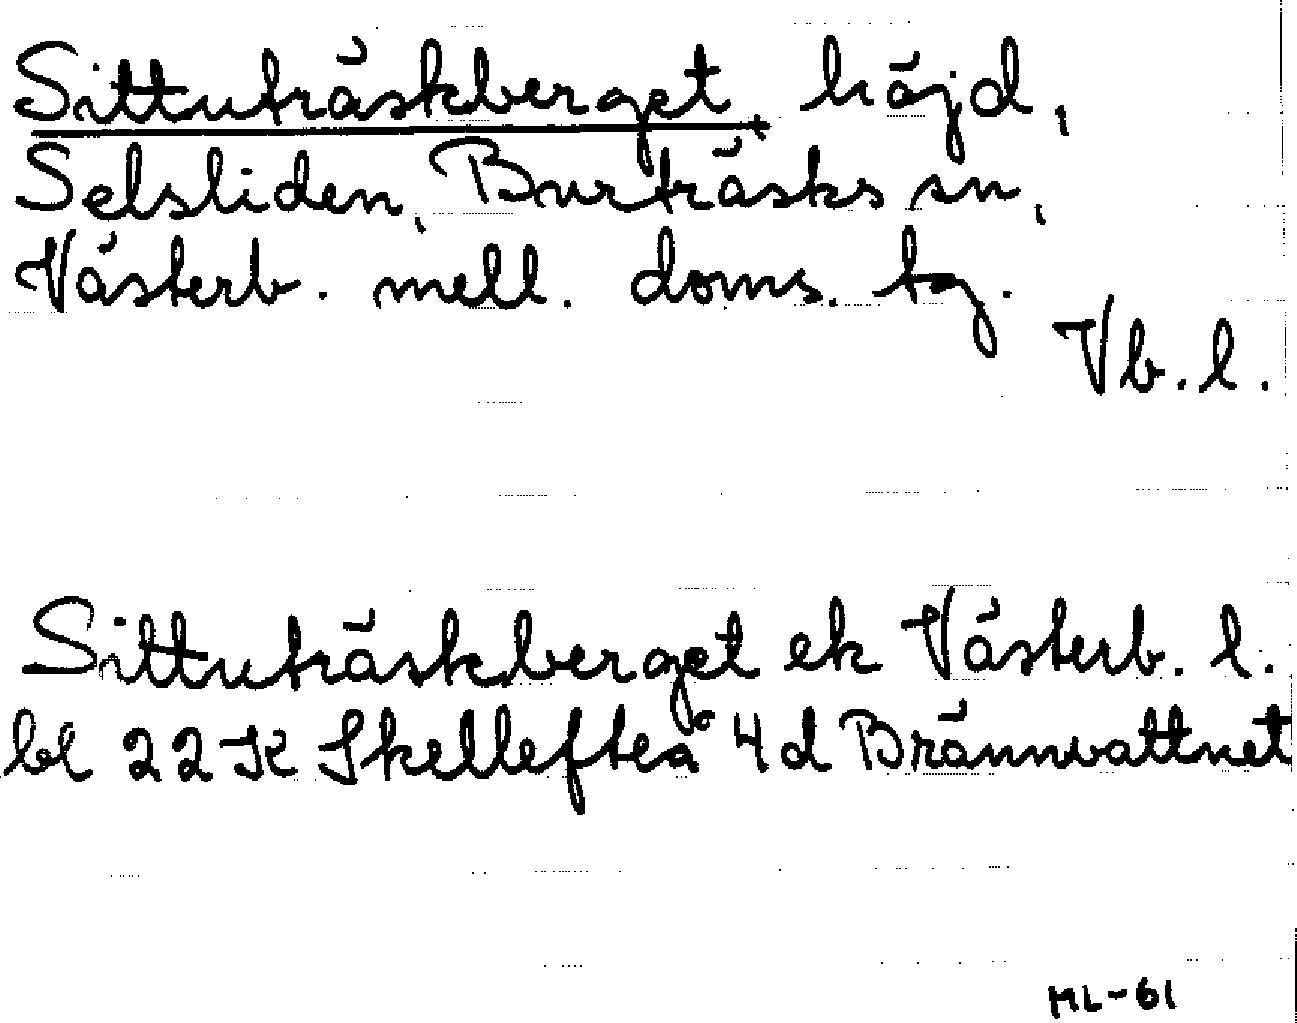 Sittuträskberget, höjd,
Selsliden, Burträsks sn,
Västerb. mell. doms. tg.
Vb. l.
Sittuträskberget ek Västerb. l.
bl 22 K Skellefteå 4d Brännvattnet
ML-61